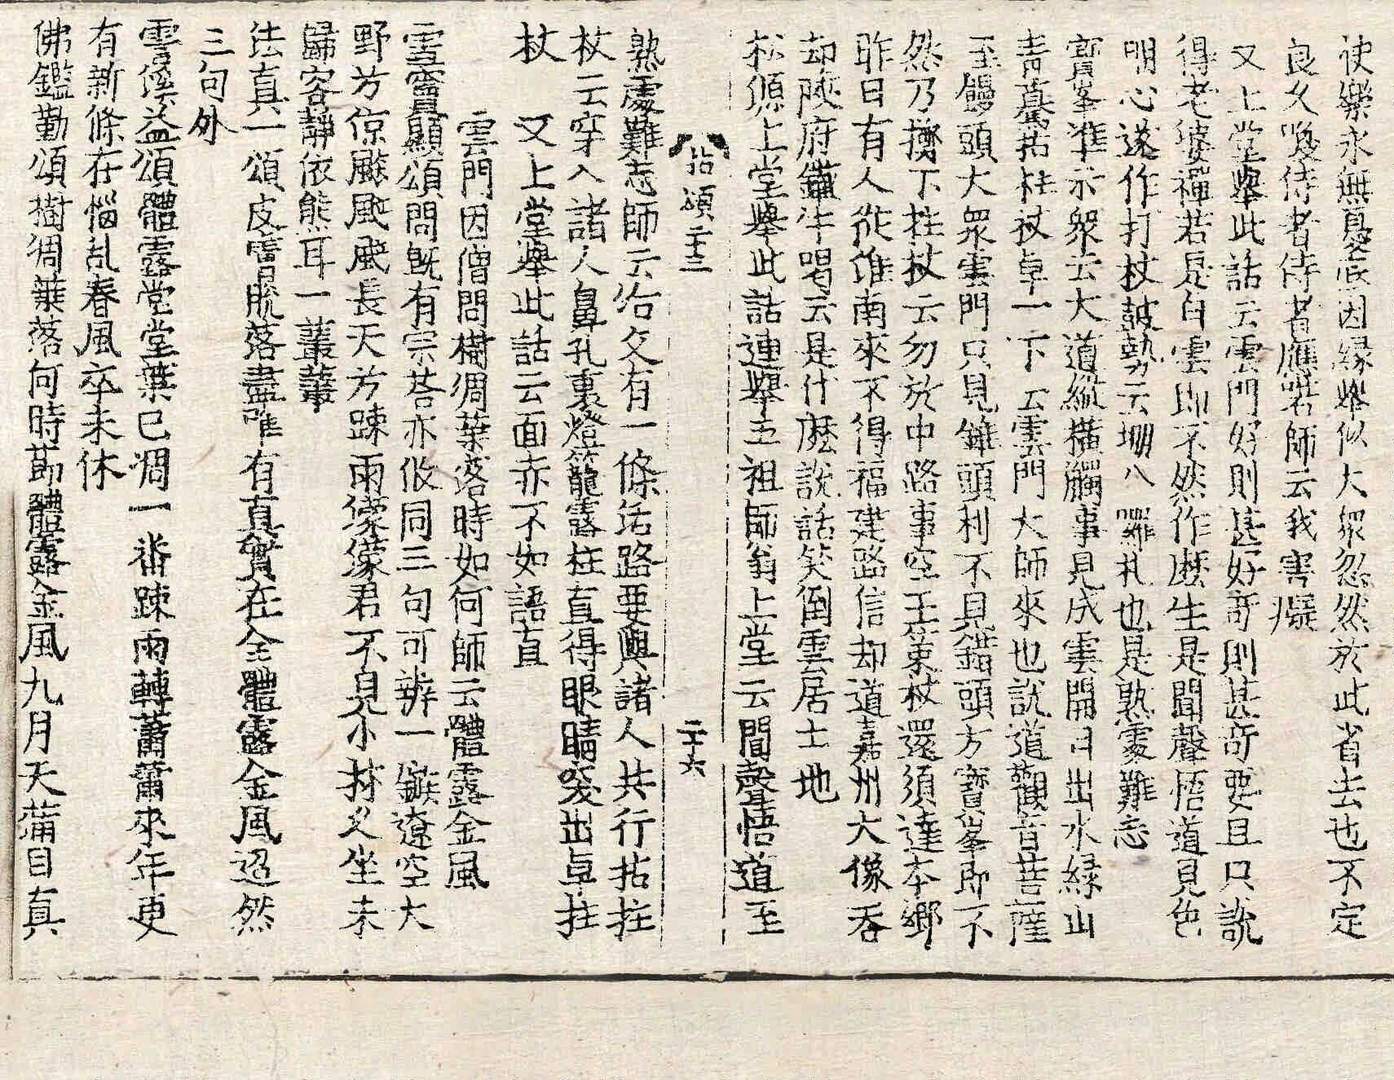 使樂永無憂宏因緣舉似大眾忽然於此省去也不定
良久喚侍者侍者應喏師云我害癡
又上堂舉此話云雲門好則甚好奇則甚奇要且只說
得老婆禪若是白雲即不然作麽生是聞聲悟道見色
明心遂作打杖鼓勢云堋八囉札也是熟處難忘
寶峯準示衆云大道縱橫觸事見成雲開日出水緑山
青驀拈柱杖卓一下云雲門大師來也說道觀音菩薩
至饅頭大衆雲門只見錐頭利不見鑿頭方寶峯即不
然乃擲下拄杖云勿於中路事空王策杖還須達本鄉
昨日有人從淮南來不得福建路信却道嘉州大像呑
却陝府鐵牛喝云是什麽說話笑倒雲居土地
松源上堂舉此話連舉五祖師翁上堂云聞聲悟道至
拈頌二十三
二十六
熟處難忘師云冶父有一條活路要與諸人共行拈拄
杖云穿入諸人鼻孔裏燈籠露柱直得眼睛突出卓拄
杖 又上堂舉此話云面赤不如語直
雲門因僧問樹凋葉落時如何師云體露金風
雪竇顯頌問旣有宗荅亦攸同三句可辨一鏃遼空大
野兮凉飈颯颯長天兮踈雨濛濛君不見小林久坐未
歸客靜依熊耳一叢叢
法真一頌皮膚脫落盡唯有真實在全體露金風迢然
三句外
雲溪益頌體露堂堂葉已凋一番踈雨轉蕭蕭來年更
有新條在惱乱春風卒未休
佛鑑勤頌樹凋葉落何時節體露金風九月天滿目真